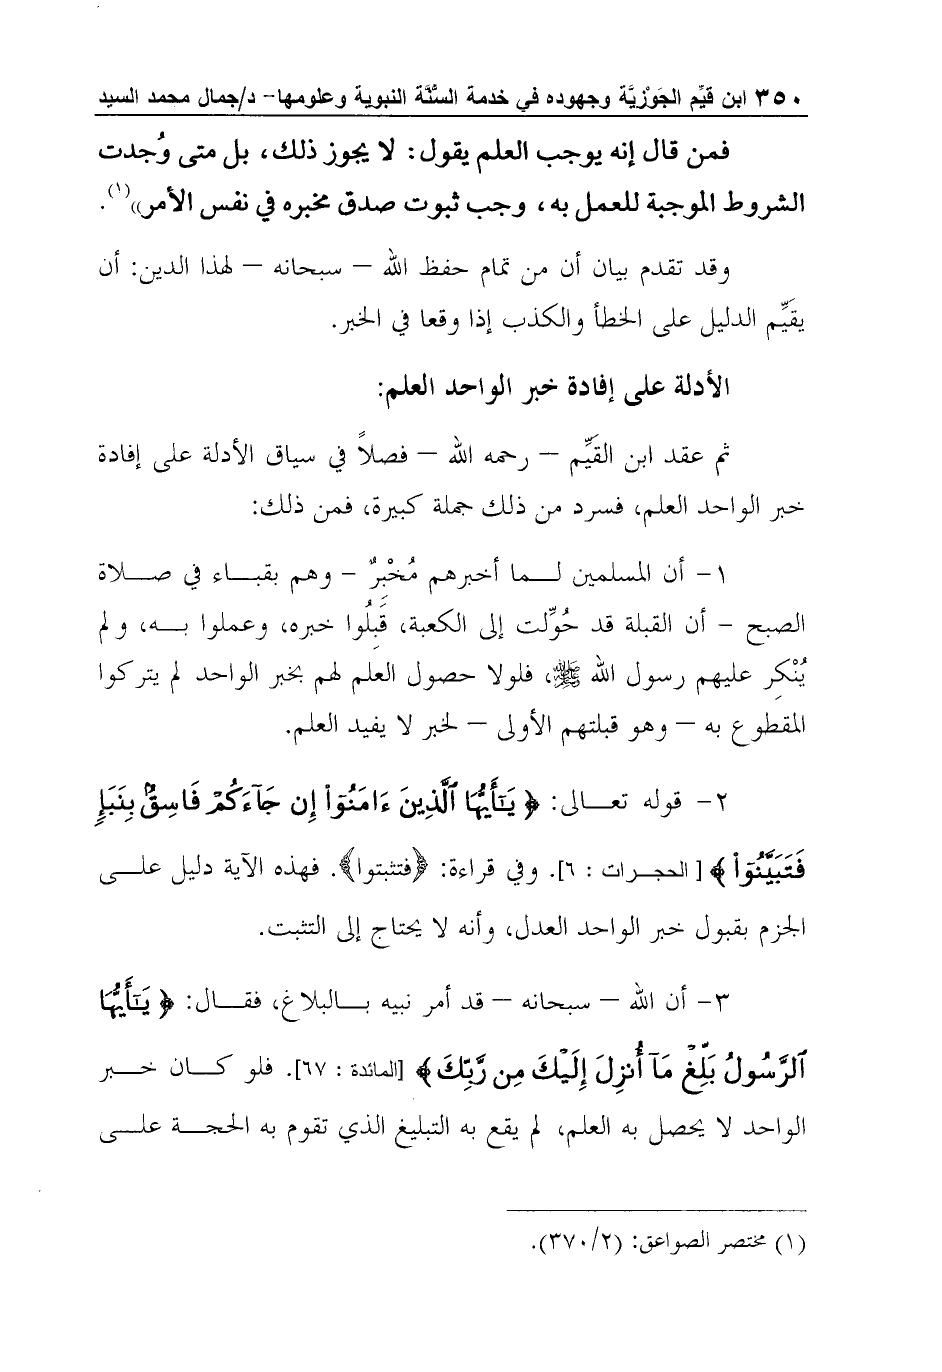 ٣٥٠ ابن قيِّم الجَوْزِيَّة وجهوده في خدمة السُّنَّة النبوية وعلومها- د/جمال محمد السيد
فمن قال إنه يوجب العلم يقول: لا يجوز ذلك، بل متى وُجدت
الشروط الموجبة للعمل به، وجب ثبوت صدق مخبره في نفس الأمر))(١).
وقد تقدم بيان أن من تمام حفظ الله – سبحانه – لهذا الدين: أن
يقَيِّم الدليل على الخطأ والكذب إذا وقعا في الخبر.
الأدلة على إفادة خبر الواحد العلم:
ثم عقد ابن القَيِّم – رحمه الله – فصلاً في سياق الأدلة على إفادة
خبر الواحد العلم، فسرد من ذلك جملة كبيرة، فمن ذلك:
١- أن المسلمين لــما أخبرهم مُخْبِرٌ – وهم بقبـاء في صـلاة
الصبح – أن القبلة قد حُوِّلت إلى الكعبة، قَبِلُوا خبره، وعملوا بــه، ولم
يُنْكِر عليهم رسول الله ﷺ، فلولا حصول العلم لهم بخبر الواحد لم يتركوا
المقطوع به – وهو قبلتهم الأولى – لخبر لا يفيد العلم.
٢- قوله تعـالى: ﴿ يَٰٓأَيُّهَا ٱلَّذِينَ ءَامَنُوٓا۟ إِن جَآءَكُمْ فَاسِقٌۢ بِنَبَإٍ
فَتَبَيَّنُوٓا۟ ﴾ [ الحجـرات : ٦]. وفي قراءة: ﴿فتثبتوا﴾. فهذه الآية دليل علـى
الجزم بقبول خبر الواحد العدل، وأنه لا يحتاج إلى التثبت.
٣- أن الله – سبحانه – قد أمر نبيه بـالبلاغ، فقـال: ﴿ يَٰٓأَيُّهَا
ٱلرَّسُولُ بَلِّغْ مَآ أُنزِلَ إِلَيْكَ مِن رَّبِّكَ ﴾ [المائدة : ٦٧]. فلو كـان خـبر
الواحد لا يحصل به العلم، لم يقع به التبليغ الذي تقوم به الحجـة علـى
(١) مختصر الصواعق: (٣٧٠/٢).